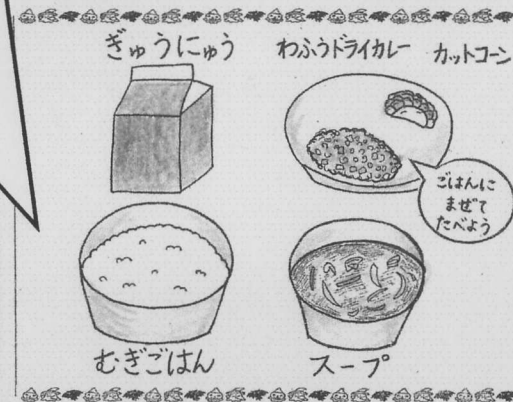 ぎゅうにゅう
わふうドライカレー
カットコーン
ごはんに
まぜて
たべよう
むぎごはん
スープ